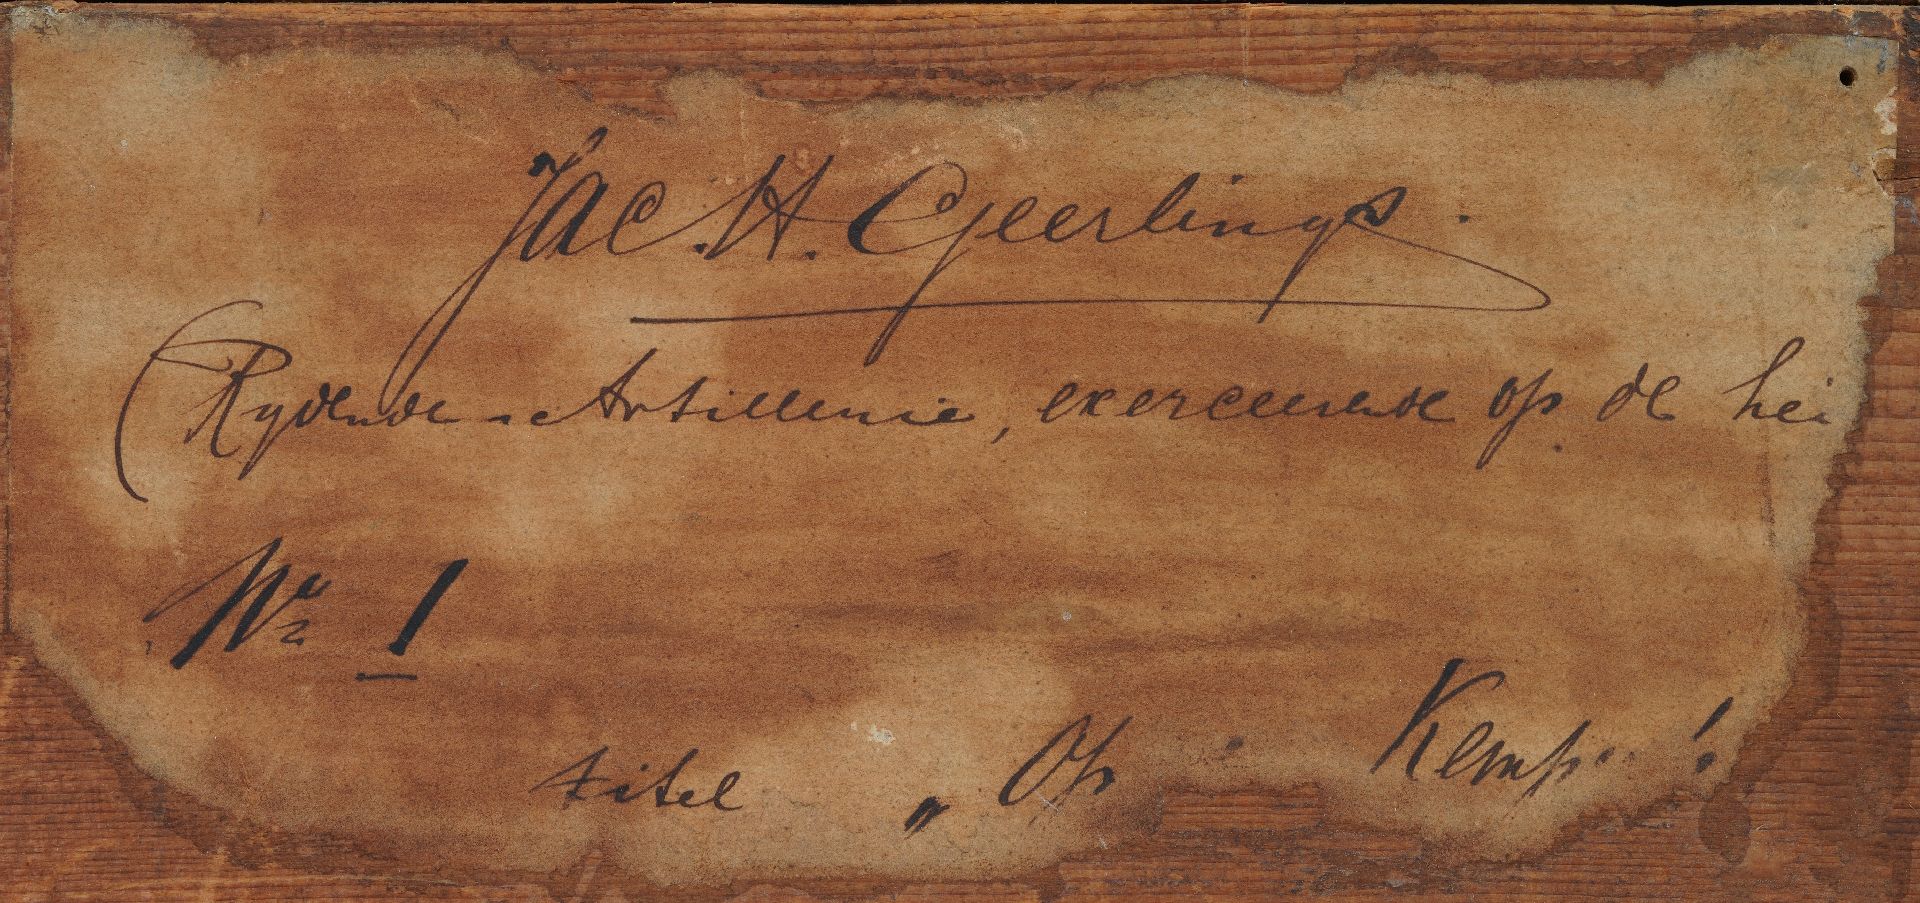 Jac. H. Geerlings.
(Rydende Artillerie, exerceerende op de hei
No 1
titel „ Op